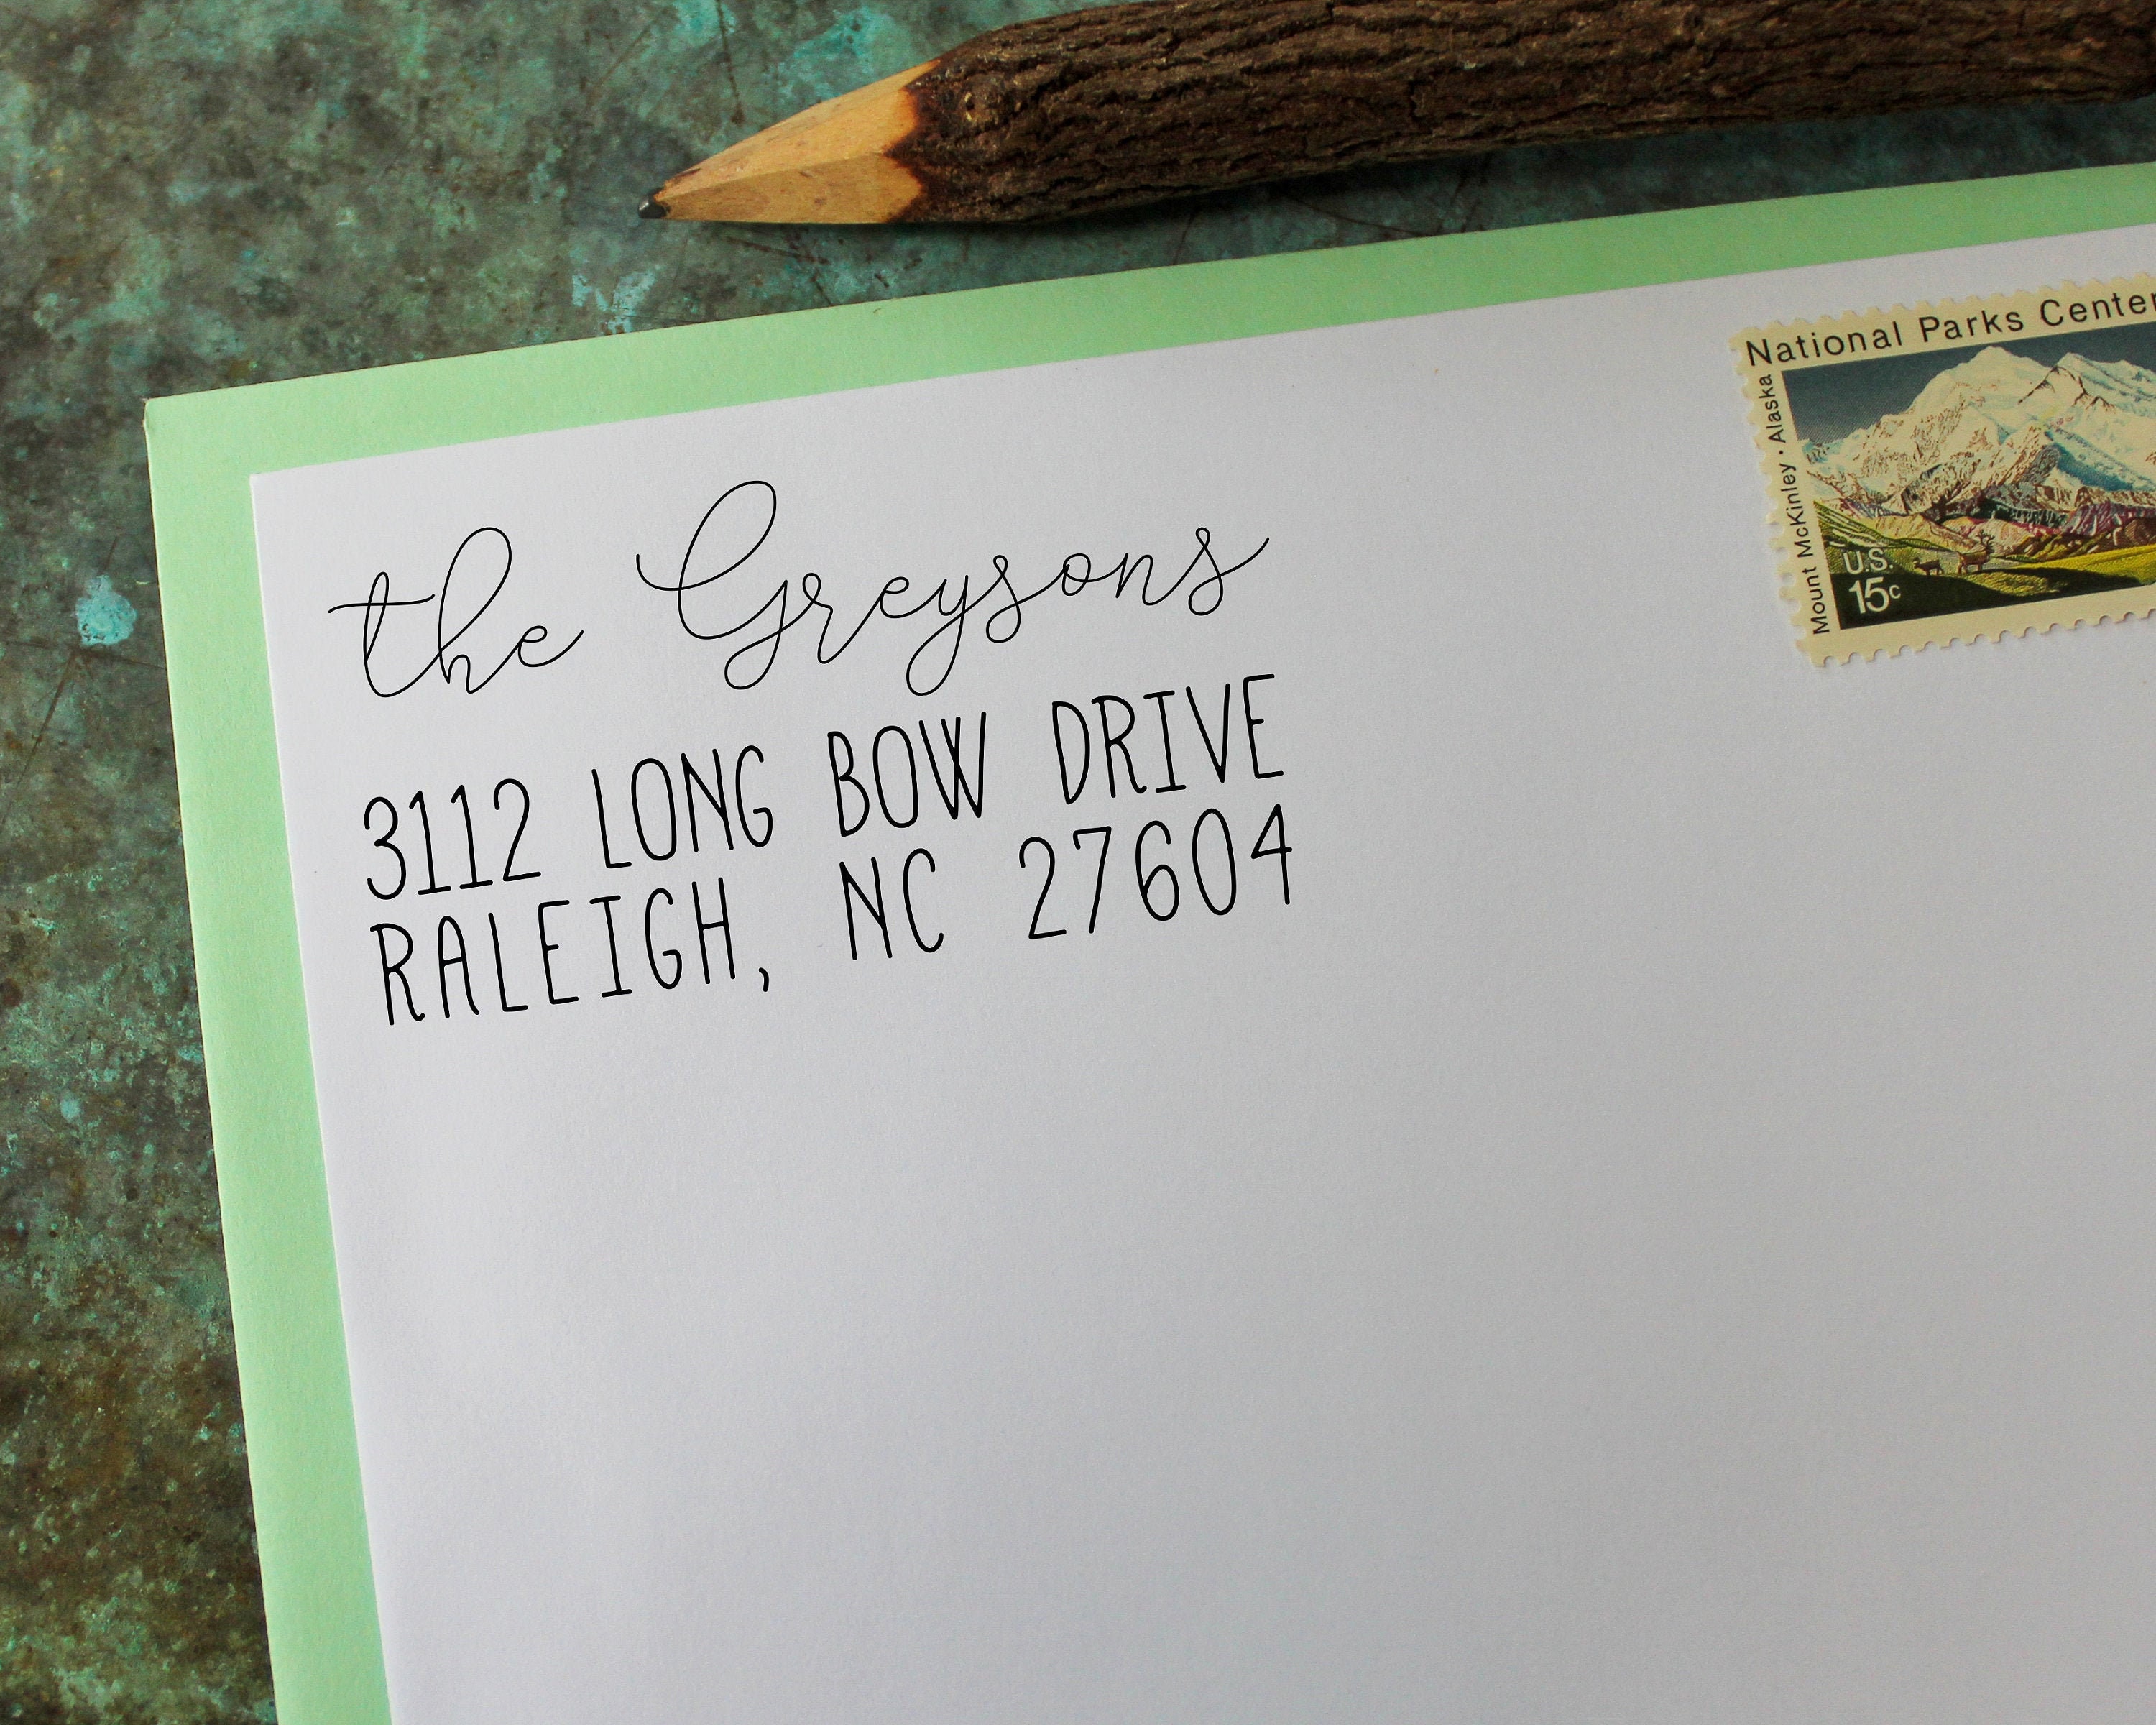 the Greysons
3112 LONG BOW DRIVE
RALEIGH, NC 27604
National Parks Center
Mount McKinley · Alaska
U.S.
15c